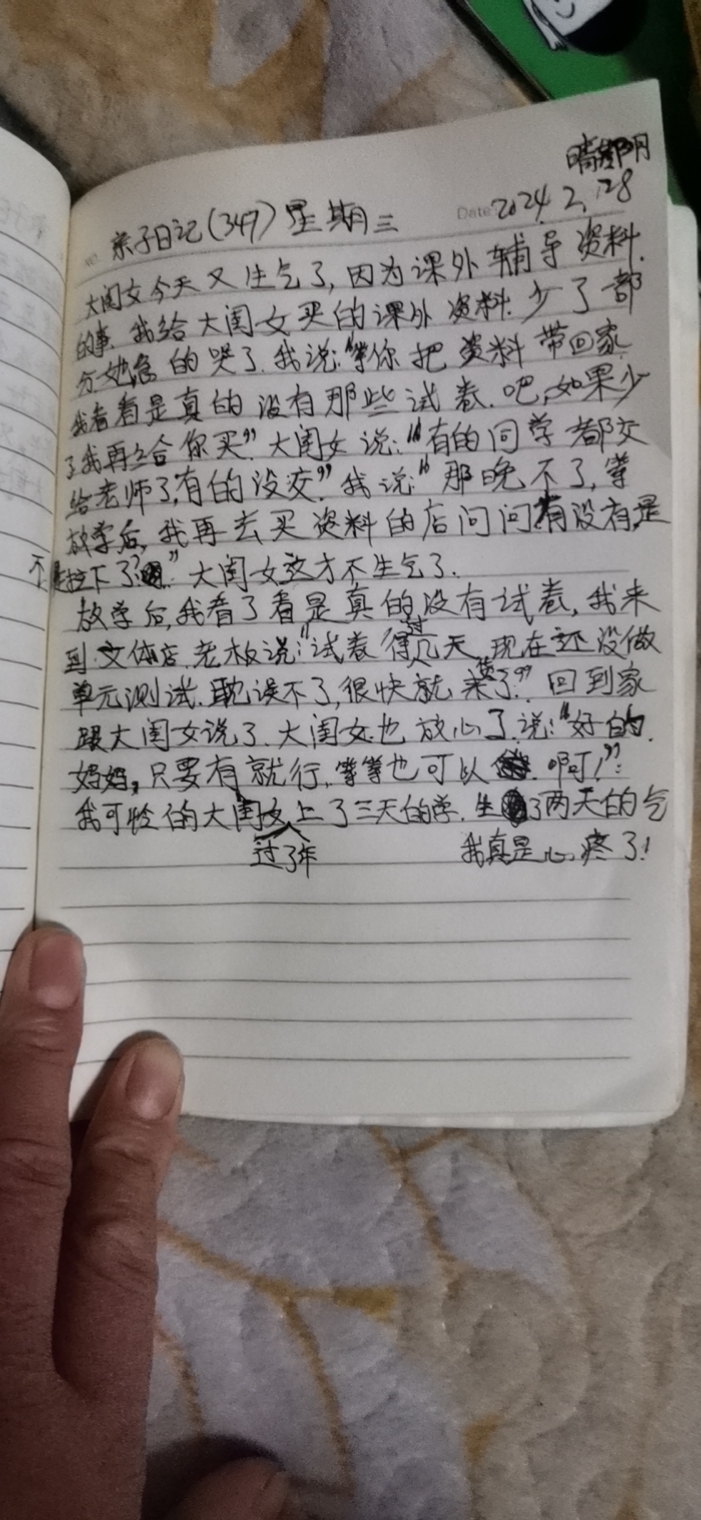 晴阴
Date 2024.2.28
亲子日记(347)星期三
大闺女今天又生气了,因为课外辅导资料.
的事.我给大闺女买的课外资料.少了部
分她急的哭了.我说:"等你把资料带回家.
我看看是真的没有那些试卷.吧,如果少
了我再给你买"大闺女说:"有的同学都交
给老师了,有的没交"我说:"那晚不了,等
放学后,我再去买资料的店问问有没有,是
不拉下了?"大闺女这才不生气了.
放学后,我看了看是真的没有试卷,我来
到文体店.老板说:"试卷得过几天,现在还没做
单元测试.耽误不了,很快就来了"回到家
跟大闺女说了.大闺女也放心了.说:"好的.
妈妈,只要有就行.等等也可以.啊!"
我可怜的大闺女过了年上了三天的学.生了两天的气
我真是心疼了!